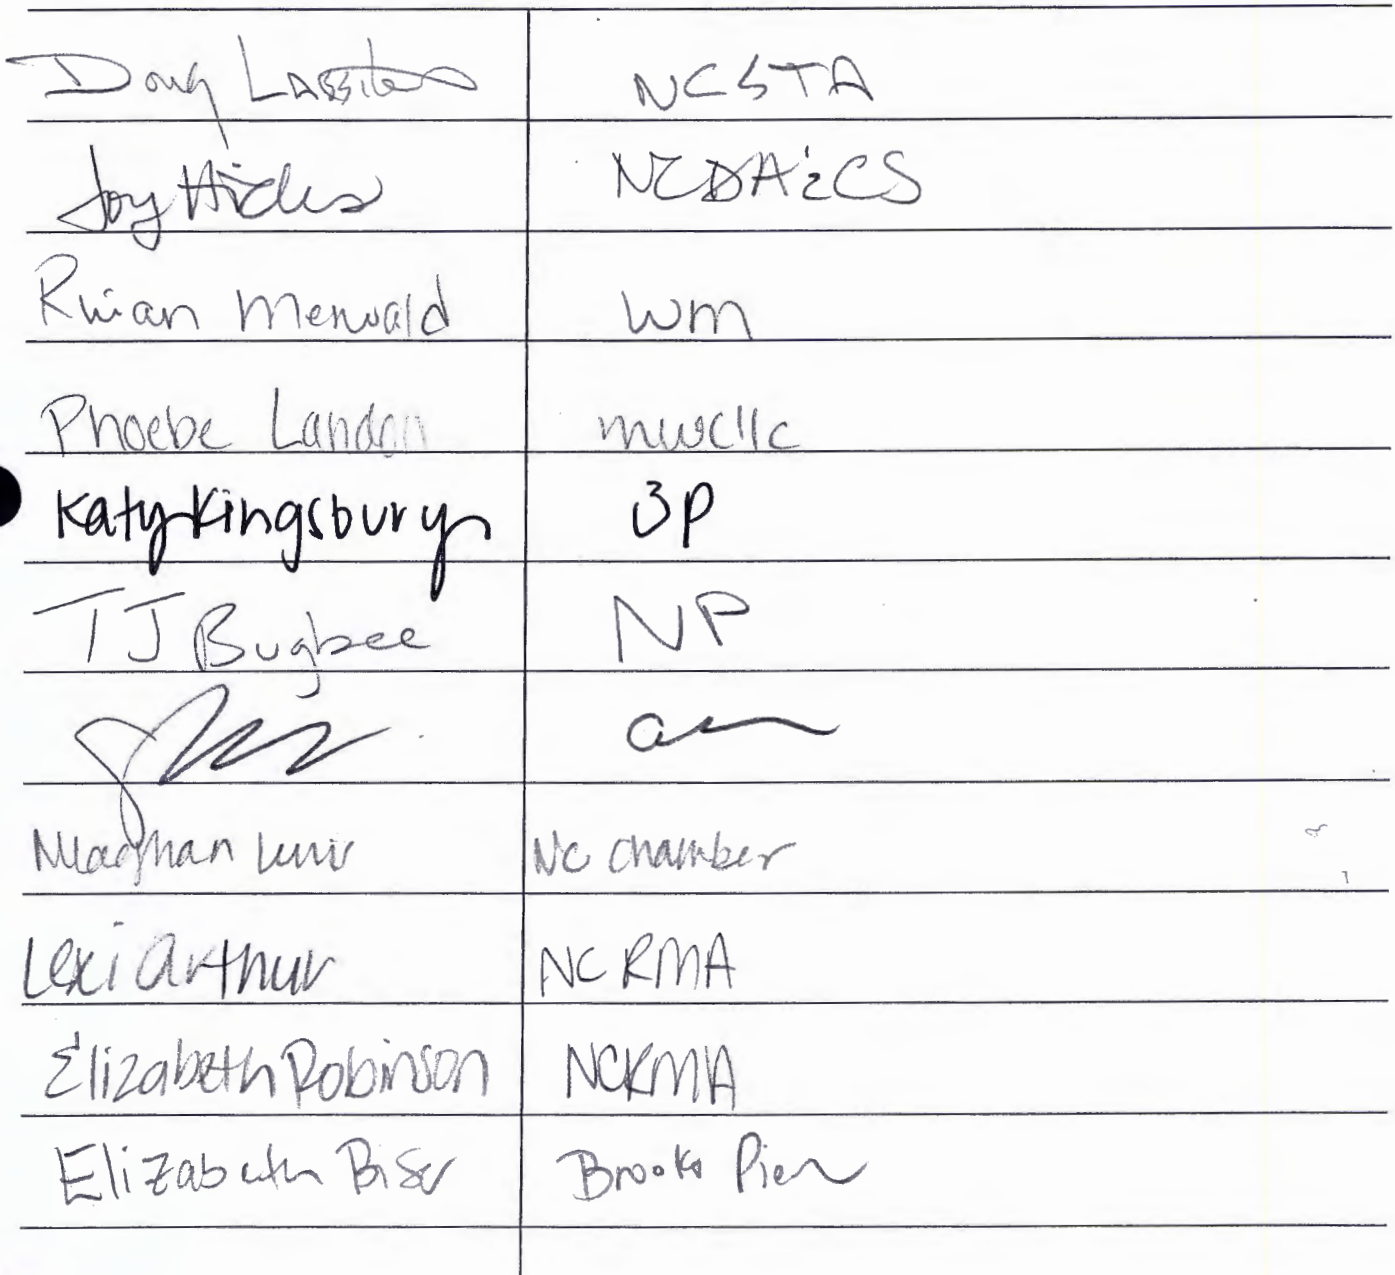 Doug Lassiter NCSTA
Joy Hicks NCDA&CS
Rhian Merwald WM
Phoebe Landon mwcllc
Katy Kingsbury BP
TJ Bugbee NP
Meaghan Lewis NC Chamber
Lexi Arthur NCRMA
Elizabeth Robinson NCRMA
Elizabeth Biser Brooks Pierce